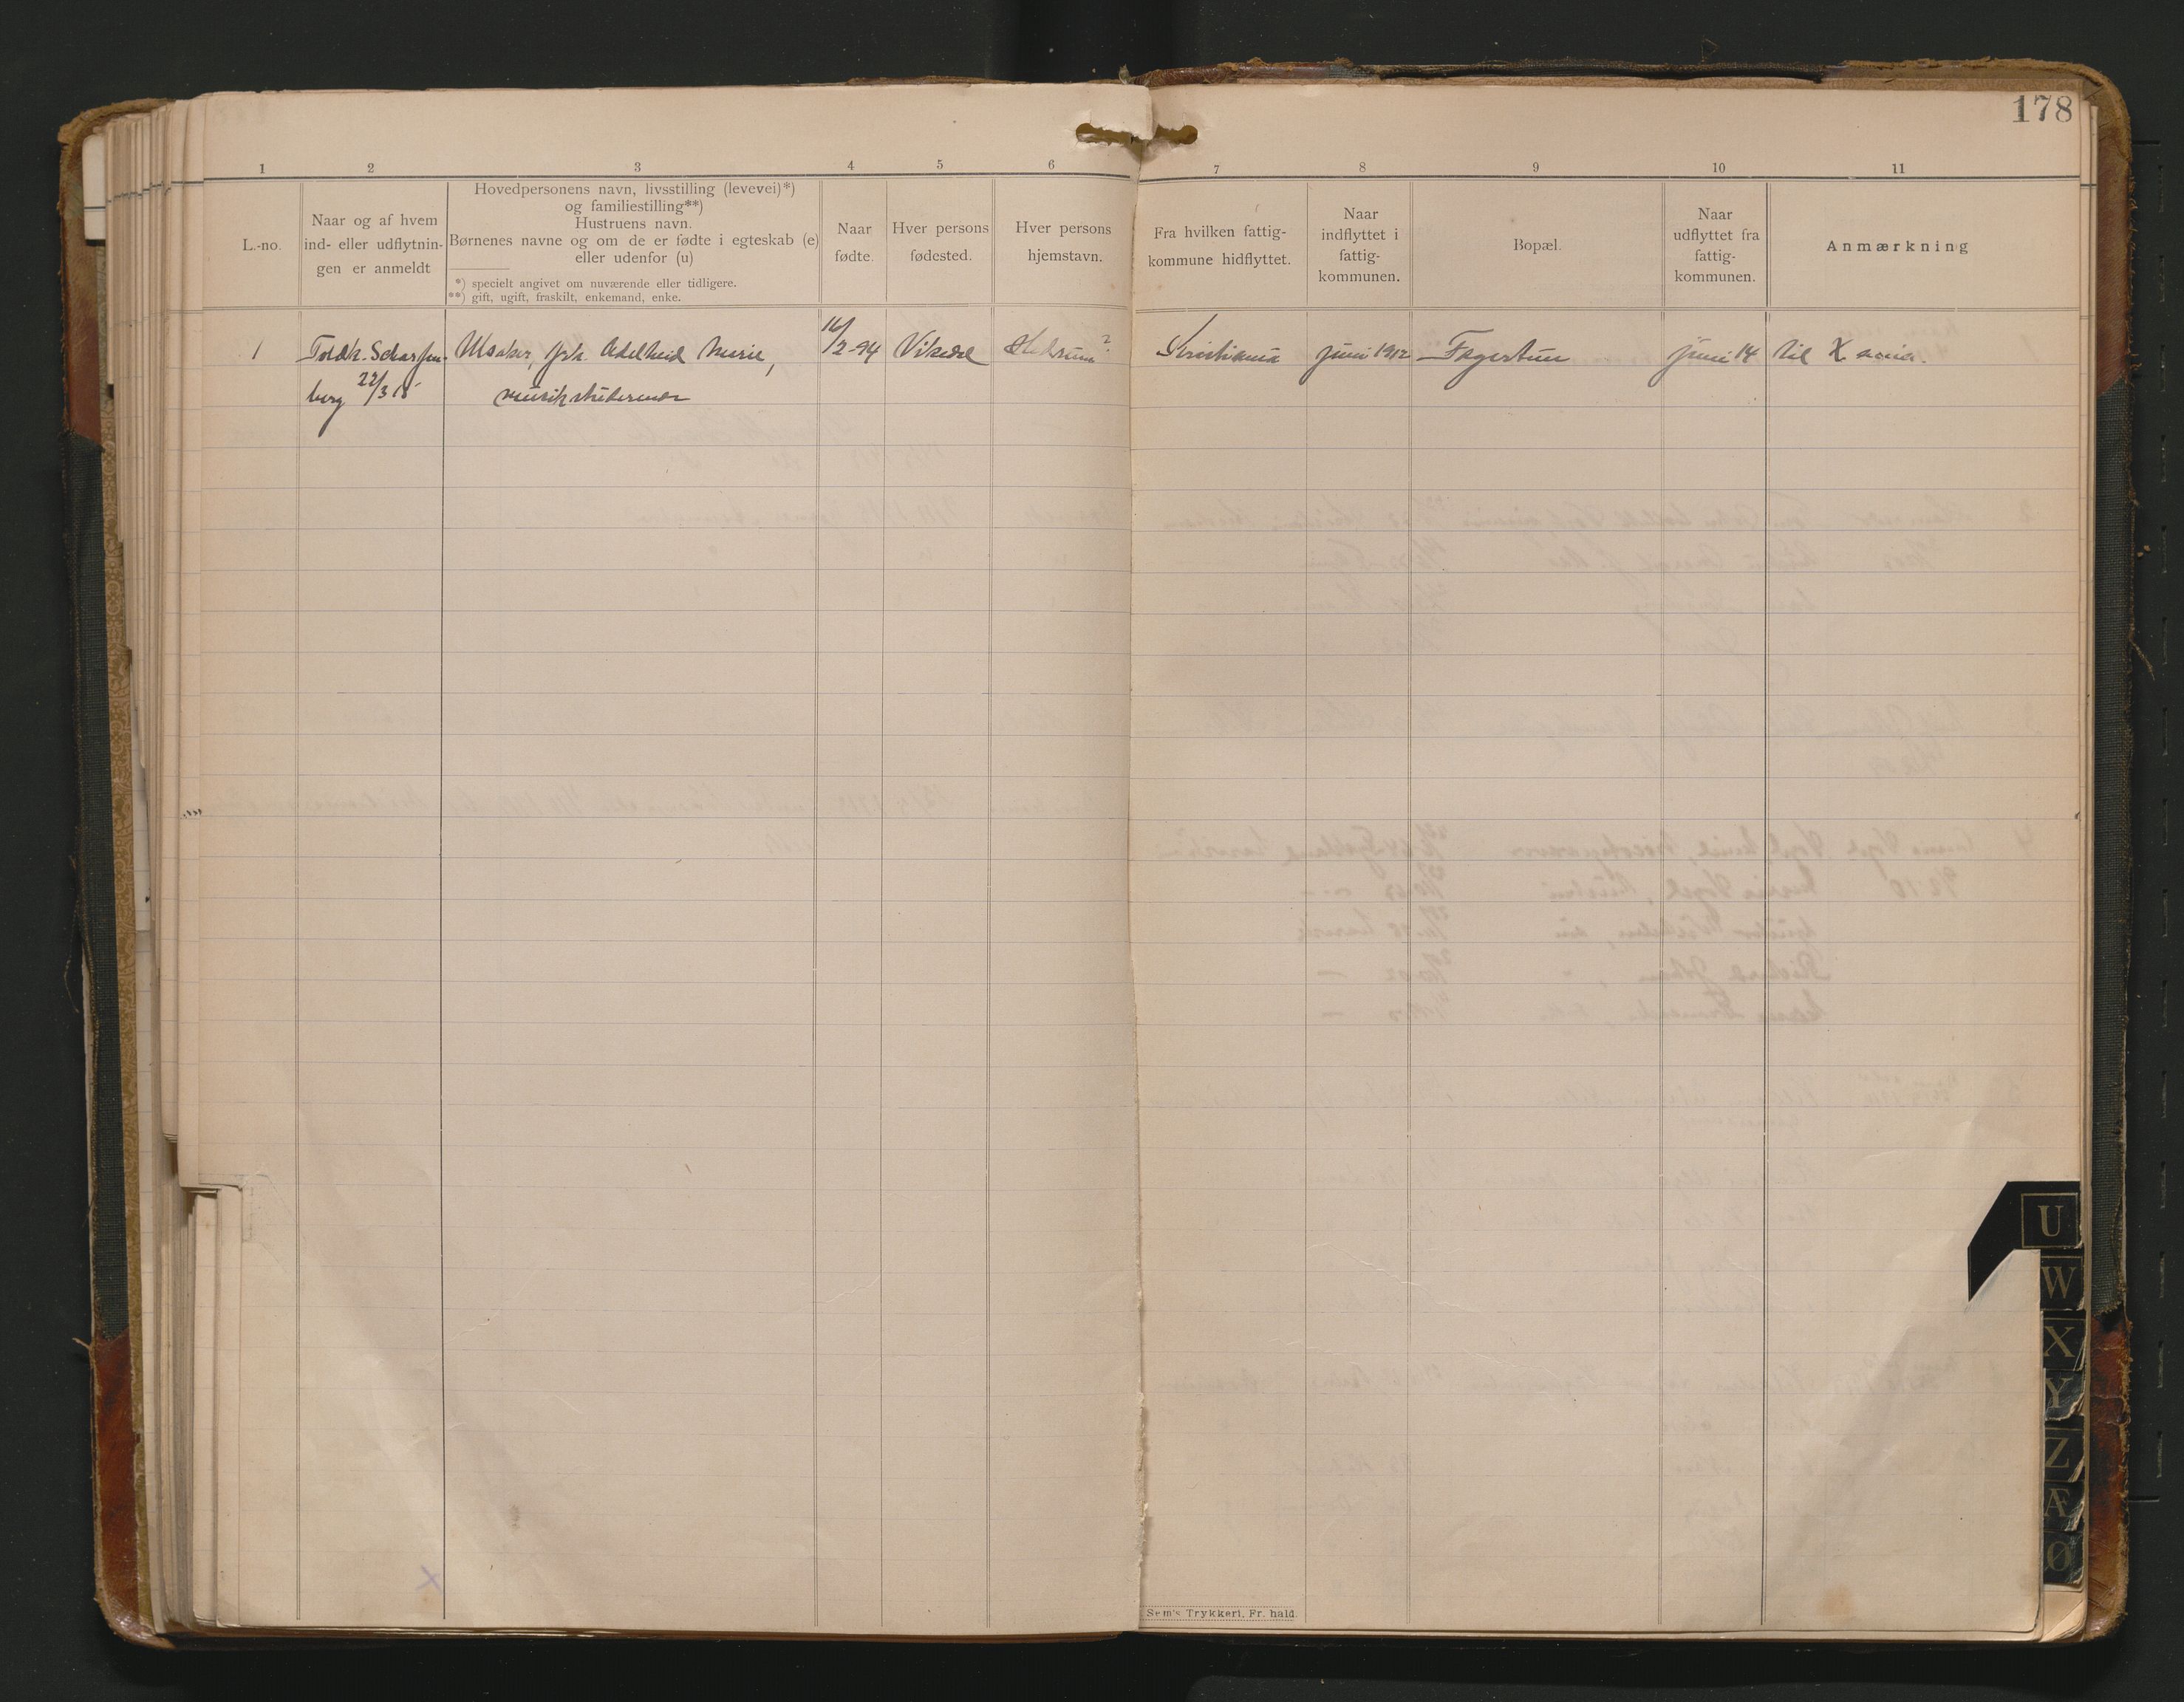 178
1 2 3 4 5 6 7 8 9 10 11
L.-no.
Naar og af hvem
ind- eller udflytnin-
gen er anmeldt
Hovedpersonens navn, livsstilling (levevei)*)
og familiestilling**)
Hustruens navn.
Børnenes navne og om de er fødte i egteskab (e)
eller udenfor (u)
*) specielt angivet om nuværende eller tidligere.
**) gift, ugift, fraskilt, enkemand, enke.
Naar
fødte.
Hver persons
fødested.
Hver persons
hjemstavn.
Fra hvilken fattig-
kommune hidflyttet.
Naar
indflyttet i
fattig-
kommunen.
Bopæl.
Naar
udflyttet fra
fattig-
kommunen.
Anmærkning
1 Toldk. Scharffen- Ulsaker, frk. Adelheid Marie, 16/2-94 Vikedal Hedrum? Kristiania juni 1912 Fagertun juni 14 til Xania.
berg 22/3 15 musikstuderende
Sem's Trykkeri, Fr. hald.
U
W
X
Y
Z
Æ
Ø